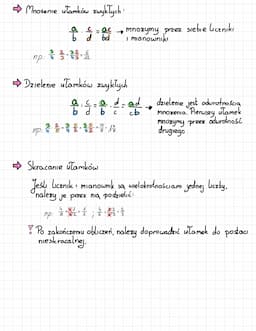 ⇒ Mnożenie ułamków zwykłych:
a/b · c/d = ac/bd → mnożymy przez siebie liczniki
i mianowniki
np.
⇒ Dzielenie ułamków zwykłych
a/b : c/d = a/b · d/c = ad/cb → dzielenie jest odwrotnością
mnożenia. Pierwszy ułamek
mnożymy przez odwrotność
drugiego.
np.
⇒ Skracanie ułamków
Jeśli licznik i mianownik są wielokrotnościami jednej liczby,
należy je przez nią podzielić:
np.
! Po zakończeniu obliczeń, należy doprowadzić ułamek do postaci
nieskracalnej.